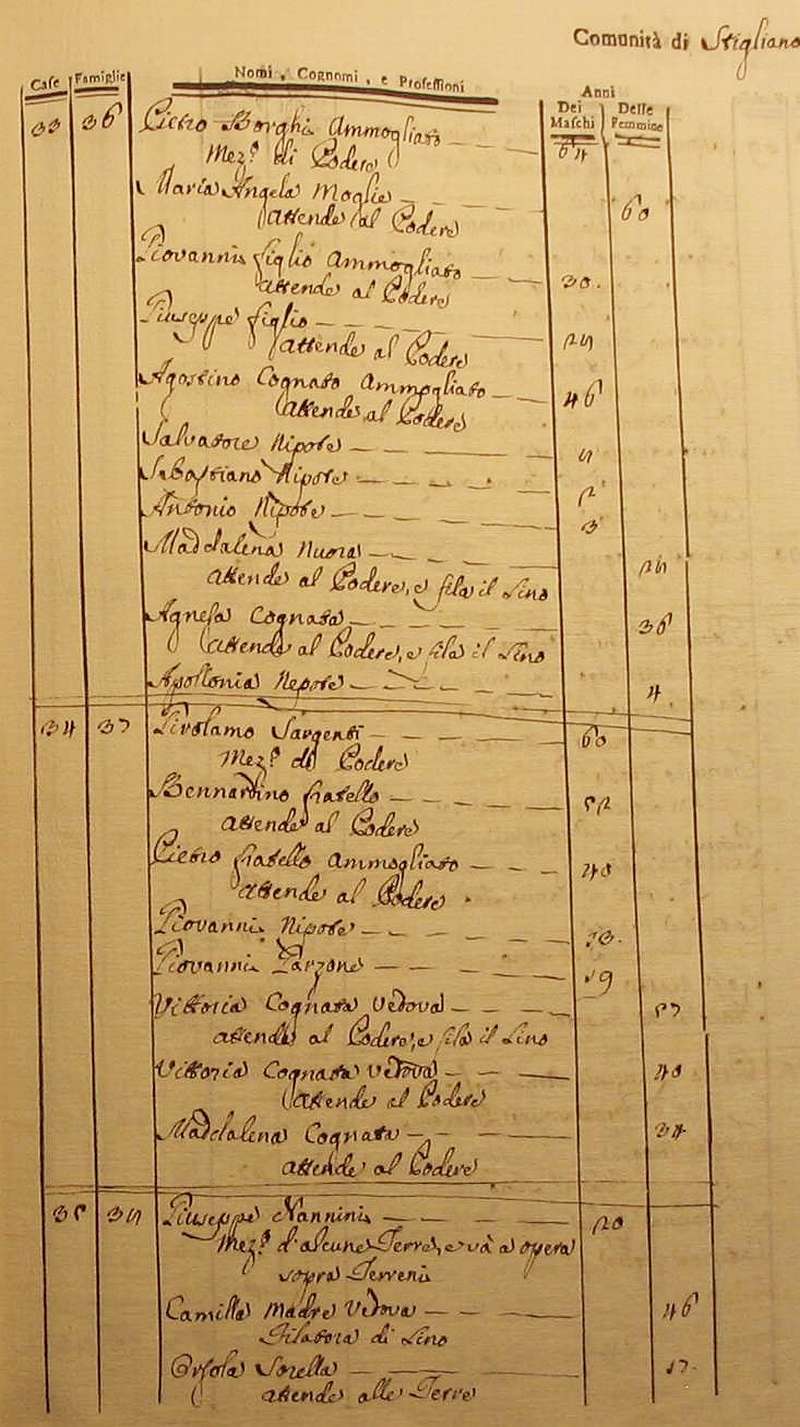 Comunità di Stigliano
Case Famiglie Nomi, Cognomi, e Professioni Anni
Dei Maschi Delle Femmine
33 36 Pietro Borghi Ammogliato 64
Mez.o di Podere
Maria Angela Moglie 60
attende al Podere
Giovanni figlio Ammogliato 30.
attende al Podere
Giuseppe figlio
attende al Podere
Agostino Cognato Ammogliato 46
attende al Podere
Salvatore Nipote
Sebastiano Nipote
Antonio Nipote 3
Maddalena Nuora
attende al Podere, e fila il Lino
Agnesa Cognata 36
attende al Podere, e fila il Lino
Apollonia Nepote 4
34 37 Girolamo Sargenti 60
Mez.o di Podere
Bennardino fratello 52
attende al Podere
Pietro fratello Ammogliato 40
attende al Podere
Giovanni Nipote
Giovanni Garzone 19
Vittoria Cognata Vedova 57
attende al Podere, e fila il Lino
Vittoria Cognata Vedova 40
attende al Podere
Maddalena Cognata 34
attende al Podere
35 38 Giuseppe Nannini 20
Mez.o d'alcune Terre, e và a opera
sopra Terreni
Camilla Madre Vedova 46
Filatora di Lino
Orsola Sorella 17
attende alle Terre